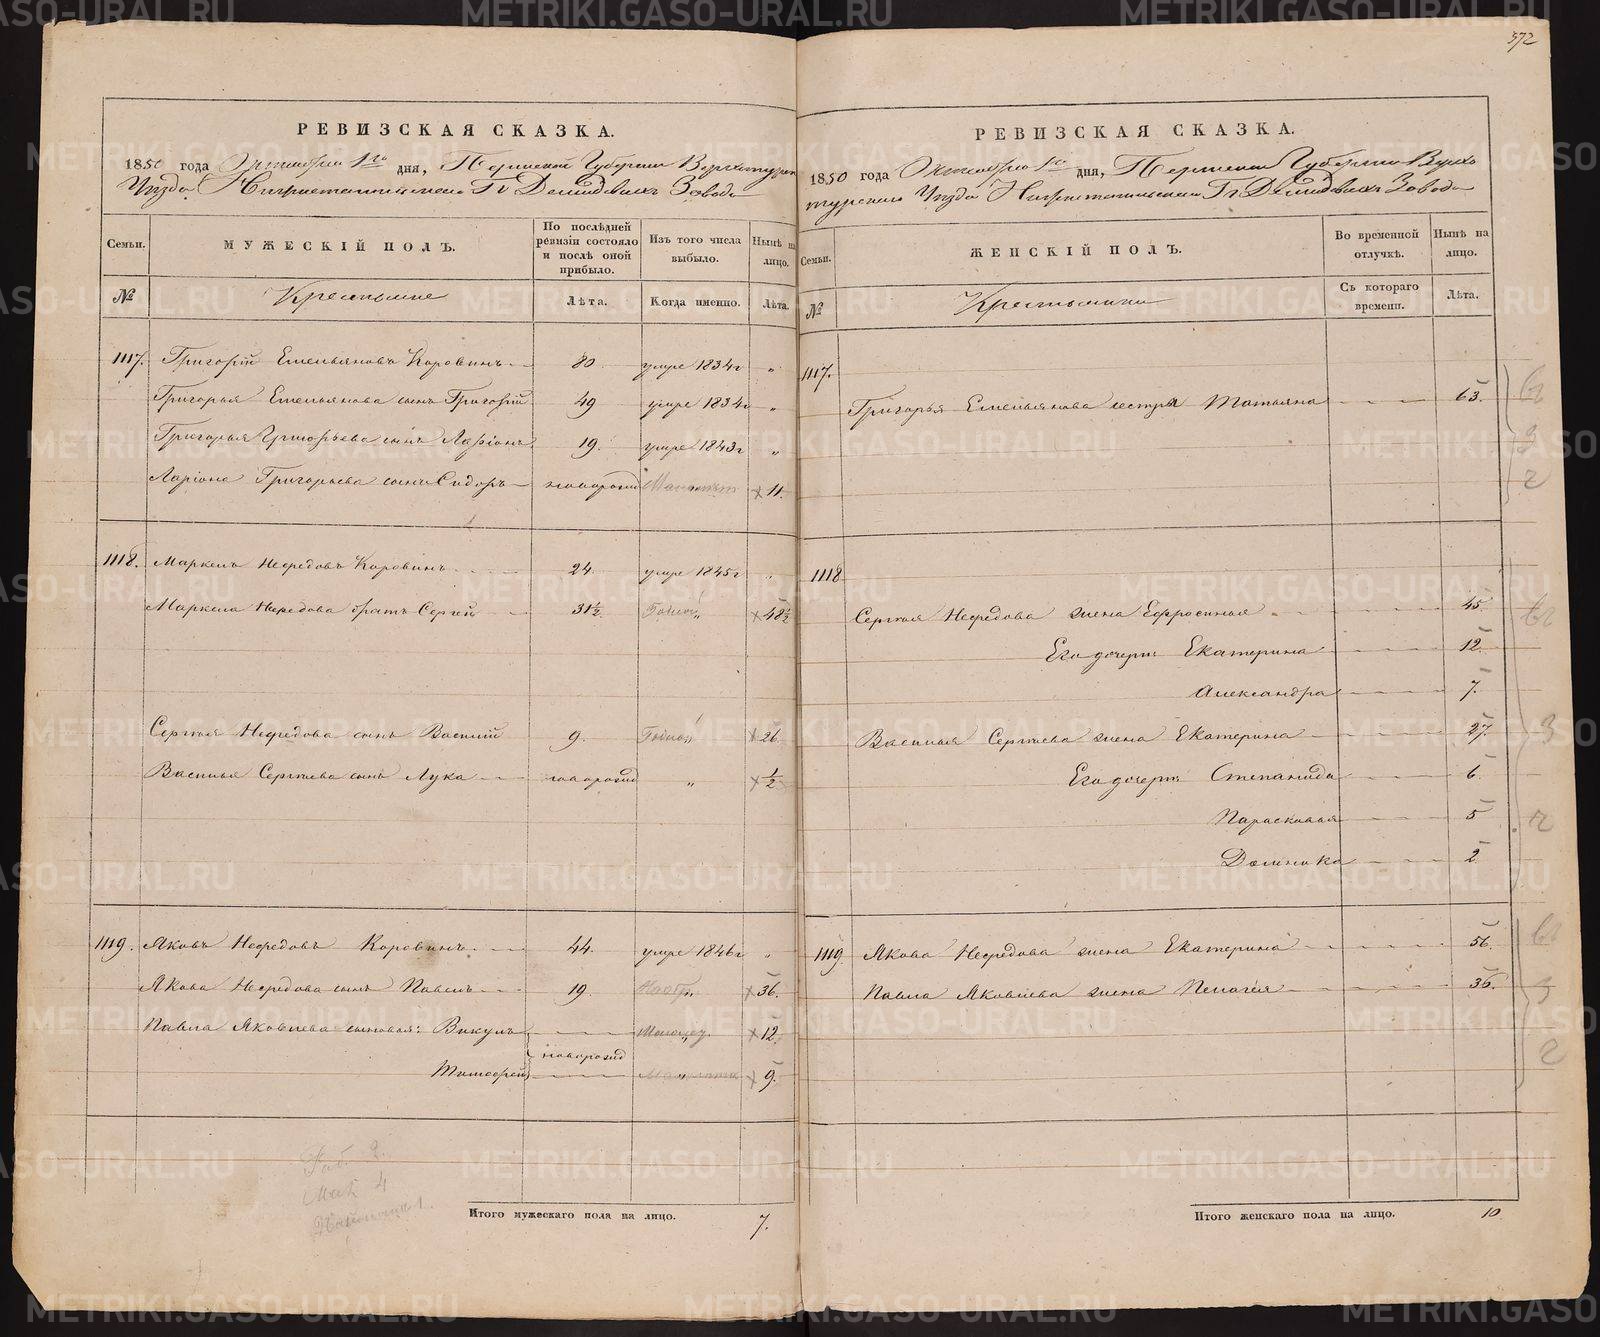 572
РЕВИЗСКАЯ СКАЗКА.
1850 года Октября 1го дня, Пермской Губернии Верхотурск
Уезда Нижнетагильскаго Гг Демидовыхъ Завода
Семьи. МУЖЕСКІЙ ПОЛЪ. По послѣдней ревизіи состояло и послѣ оной прибыло. Изъ того числа выбыло. Нынѣ на лицо.
№ Крестьяне Лѣта. Когда именно. Лѣта.
1117. Григорій Емельяновъ Коровинъ 80 умре 1834г "
Григорья Емельянова сынъ Григорій 49 умре 1834г "
Григорья Григорьева сынъ Ларіонъ 19. умре 1843г "
Ларіона Григорьева сынъ Сидоръ новорожд 11.
1118. Маркелъ Нефедовъ Коровинъ 24. умре 1845г "
Маркела Нефедова братъ Сергей 31½ " 48½
Сергея Нефедова сынъ Василій 9. " 26.
Василья Сергеева сынъ Лука новорожд " ½
1119. Яковъ Нефедовъ Коровинъ 44. умре 1846г "
Якова Нефедова сынъ Павелъ 19. " 36.
Павла Яковлева сыновья: Викулъ 12.
новорожд
Тимофей " 9.
Итого мужескаго пола на лицо. 7.
РЕВИЗСКАЯ СКАЗКА.
1850 года Октября 1го дня, Пермской Губерніи Верхо
турскаго Уезда Нижнетагильскаго Гг Демидовыхъ Завода
Семьи. ЖЕНСКІЙ ПОЛЪ. Во временной отлучкѣ. Нынѣ на лицо.
№ Крестьянки Съ котораго времени. Лѣта.
1117.
Григорья Емельянова сестра Татьяна 63.
1118
Сергея Нефедова жена Ефросинья 45.
Его дочери: Екатерина 12.
Александра 7.
Василья Сергеева жена Екатерина 27.
Его дочери: Степанида 6.
Парасковья 5
Домника 2
1119. Якова Нефедова жена Екатерина 56.
Павла Яковлева жена Пелагея 36.
Итого женскаго пола на лицо. 10
METRIKI.GASO-URAL.RU